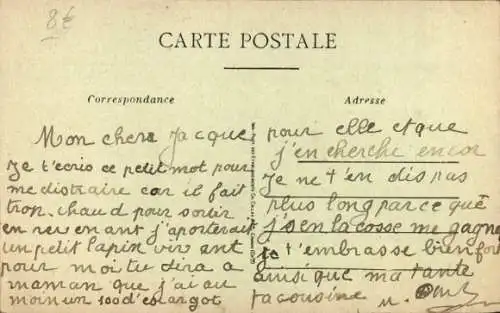 8€
CARTE POSTALE
Correspondance
Adresse
Mon chere Jacque
Je t'ecris ce petit mot pour
me distraire car il fait
trop chaud pour sortir
en revenant j'aporterait
un petit lapin vivant
pour moi tu dira a
maman que j'ai au
moin un 100 d'escargot
pour elle et que
j'en cherche encor
Je ne t'en dis pas
plus long parce que
j'sen la cosse me gagne
Je t'embrasse bien fort
ainsi que ma tante
ta cousine